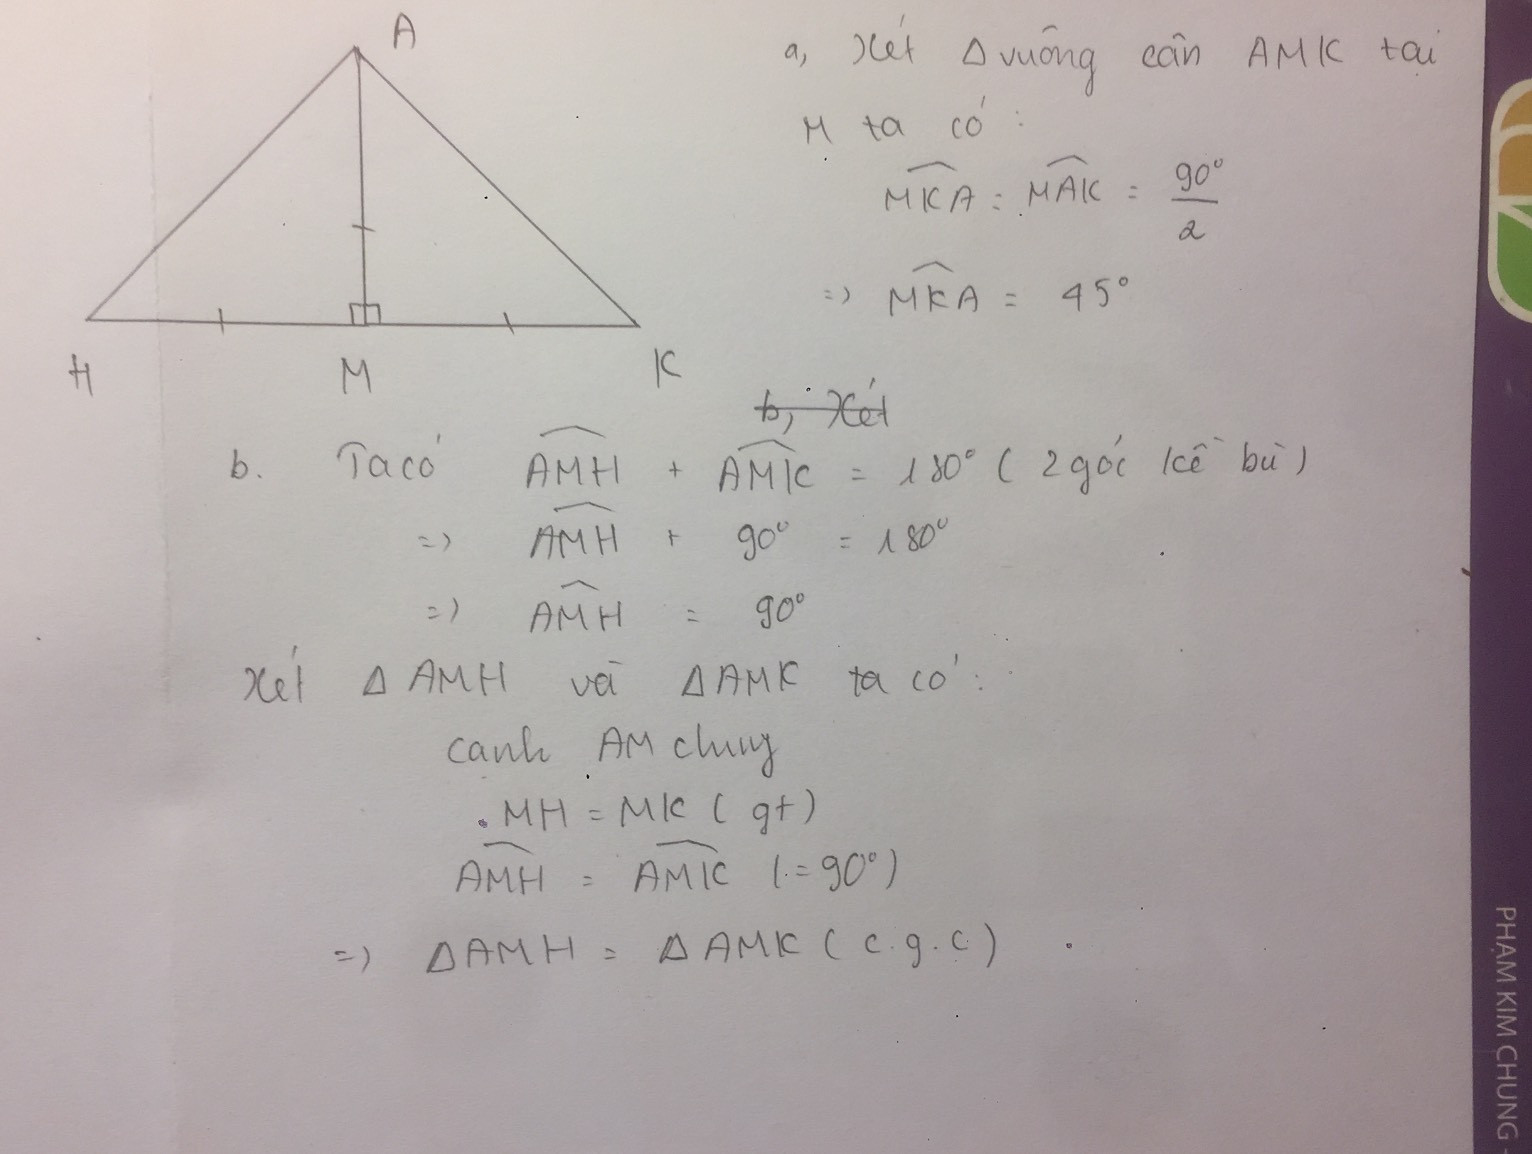 A
H M K
a, Xét Δ vuông cân AMK tại
M ta có :
\widehat{MKA} = \widehat{MAK} = \frac{90°}{2}
=> \widehat{MKA} = 45°
b, Xét
b. Ta có \widehat{AMH} + \widehat{AMK} = 180° ( 2 góc kề bù )
=> \widehat{AMH} + 90° = 180°
=> \widehat{AMH} = 90°
Xét Δ AMH và Δ AMK ta có :
cạnh AM chung
MH = MK ( gt )
\widehat{AMH} = \widehat{AMK} ( = 90° )
=> Δ AMH = Δ AMK ( c.g.c )
PHẠM KIM CHUNG -